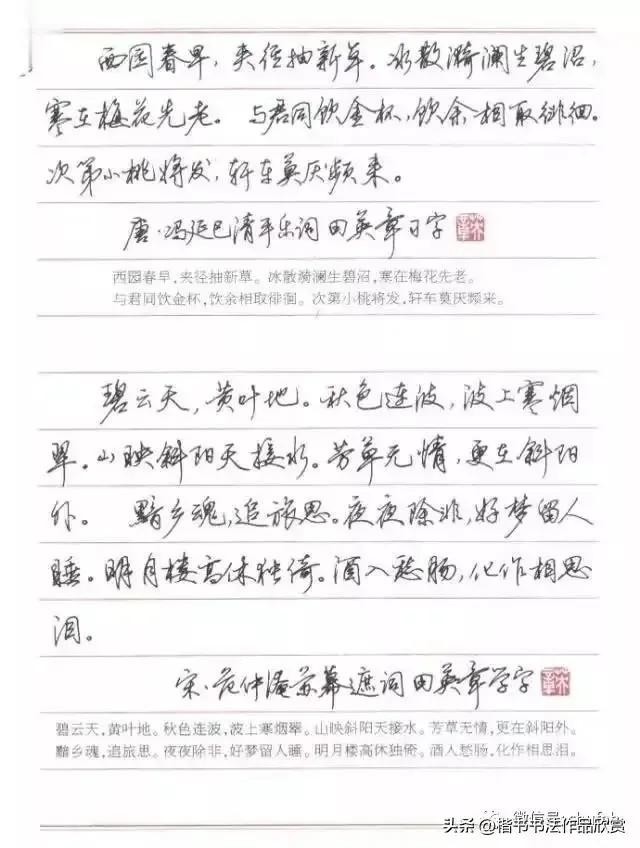 西园春早，夹径抽新草。冰散漪澜生碧沼，
寒在梅花先老。 与君同饮金杯，饮余相取徘徊。
次第小桃将发，轩车莫厌频来。
唐·冯延巳清平乐词 田英章习字
西园春早，夹径抽新草。冰散漪澜生碧沼，寒在梅花先老。
与君同饮金杯，饮余相取徘徊。次第小桃将发，轩车莫厌频来。
碧云天，黄叶地。秋色连波，波上寒烟
翠。山映斜阳天接水。芳草无情，更在斜阳
外。 黯乡魂，追旅思。夜夜除非，好梦留人
睡。明月楼高休独倚。酒入愁肠，化作相思
泪。
宋·范仲淹苏幕遮词 田英章学字
碧云天，黄叶地。秋色连波，波上寒烟翠。山映斜阳天接水。芳草无情，更在斜阳外。
黯乡魂，追旅思。夜夜除非，好梦留人睡。明月楼高休独倚。酒入愁肠，化作相思泪。
微信号
头条@楷书书法作品欣赏